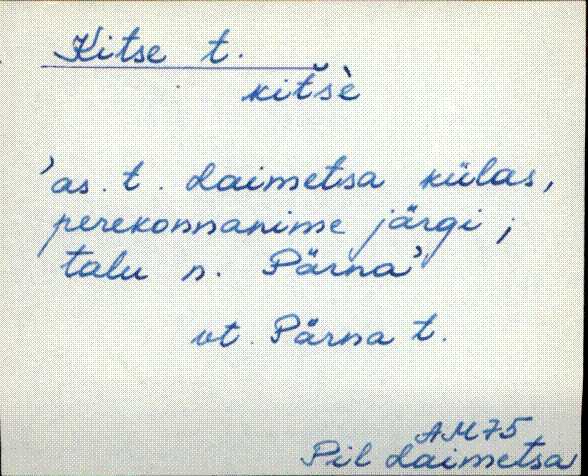 Kitse t.
kitšè
'as. t. Laimetsa külas,
perekonnanime järgi;
talu n. Pärna'
vt. Pärna t.
AM75
Pil Laimetsa